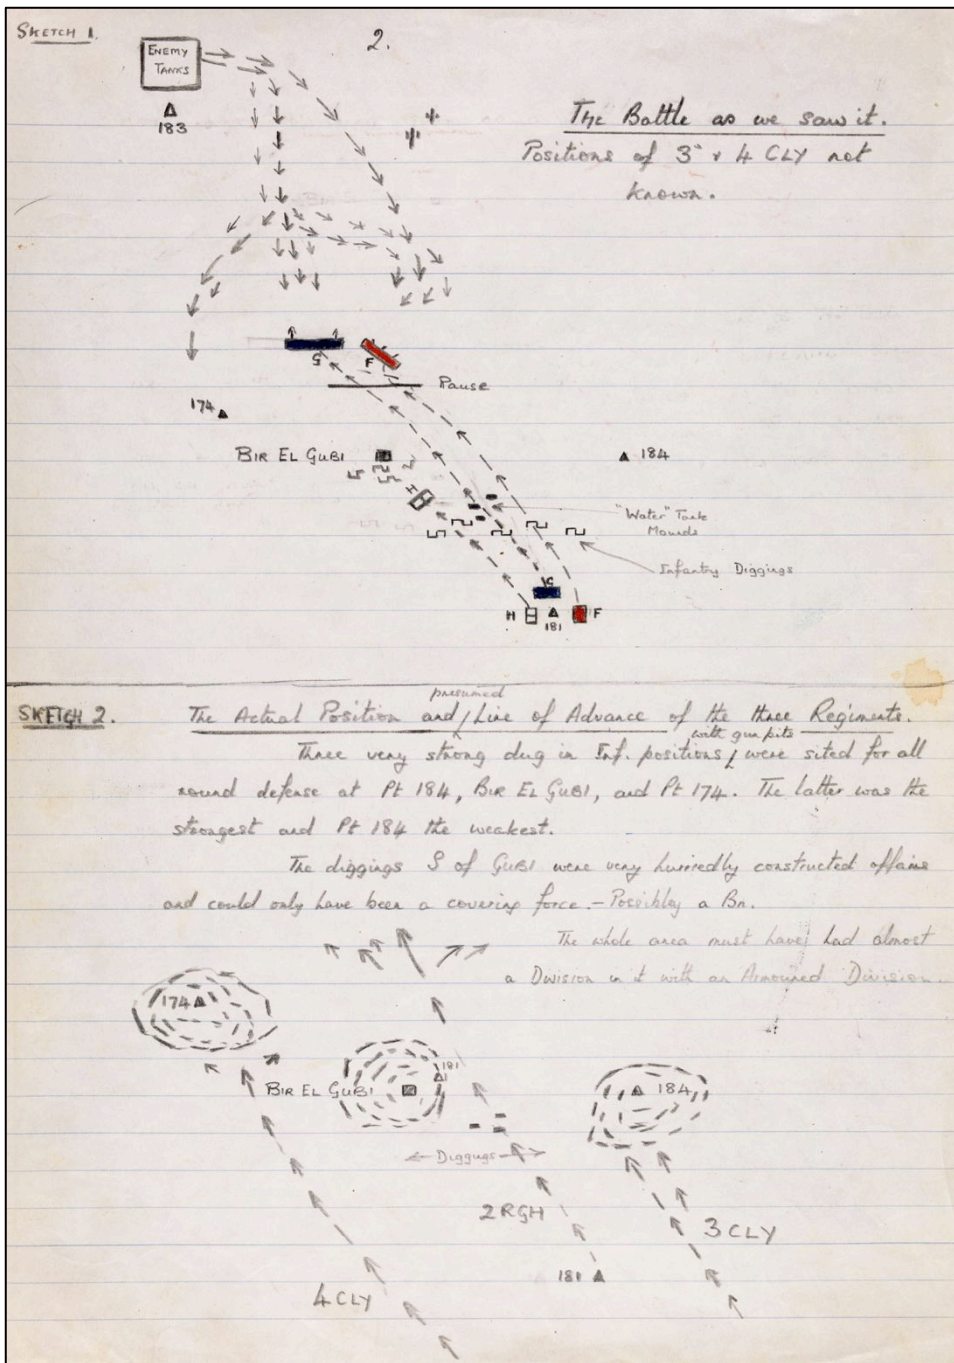 SKETCH 1.
2.
ENEMY
TANKS
183
The Battle as we saw it.
Positions of 3 & 4 CLY not
known.
G
F
Pause
174
BIR EL GUBI
184
H
"Water" Tank
Mounds
Infantry Diggings
G
H
181
F
SKETCH 2.
presumed
The Actual Position and Line of Advance of the three Regiments.
with gun pits
Three very strong dug in Inf. positions were sited for all
round defense at Pt 184, BIR EL GUBI, and Pt 174. The latter was the
strongest and Pt 184 the weakest.
The diggings S of GUBI were very hurriedly constructed affairs
and could only have been a covering force. - Possibley a Bn.
The whole area must have had almost
a Division in it with an Armoured Division.
174
181
BIR EL GUBI
184
Diggings
2 RGH
3 CLY
181
4 CLY